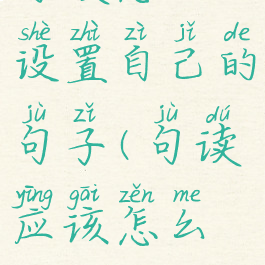 shè zhì zì jǐ de
设置自己的
jù zǐ jù dú
句子(句读
yīng gāi zěn me
应该怎么